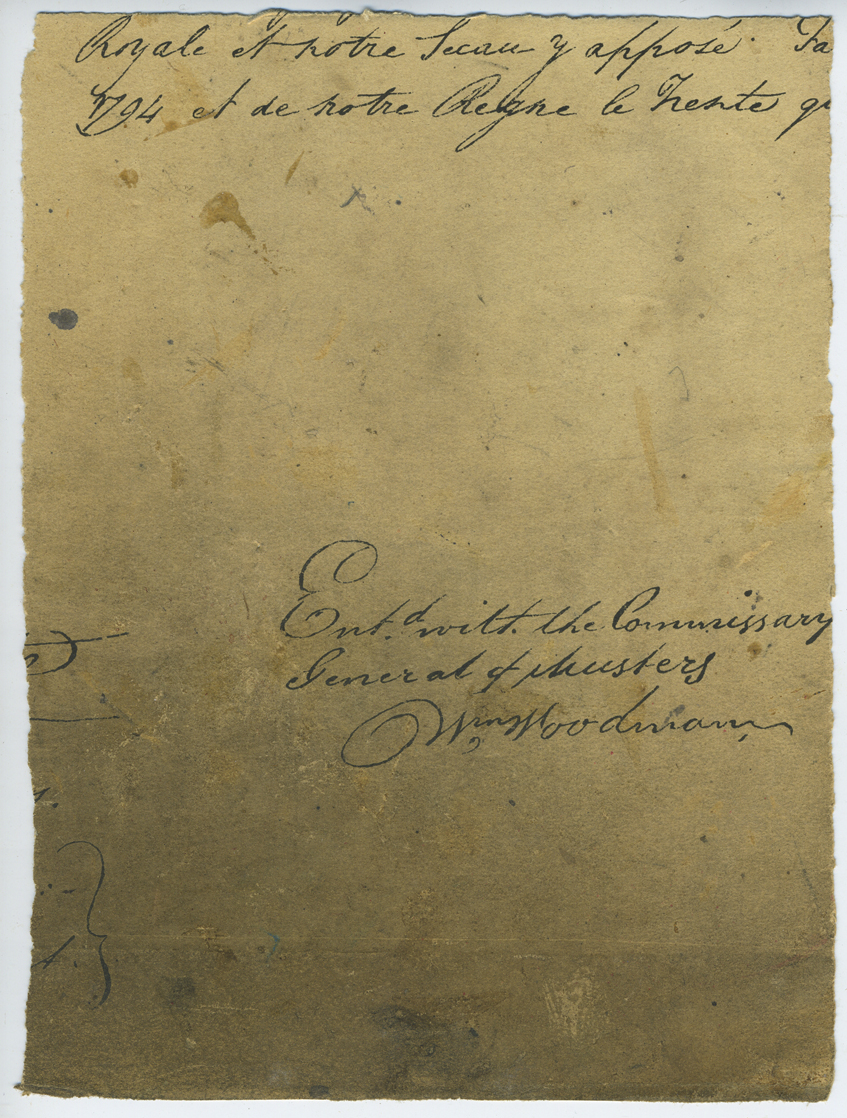 Royale et notre Sceau y apposé. Fa
1794 et de notre Regne le Trente qu
Ent.d with the Commissary
General of Musters
Wm Woodman